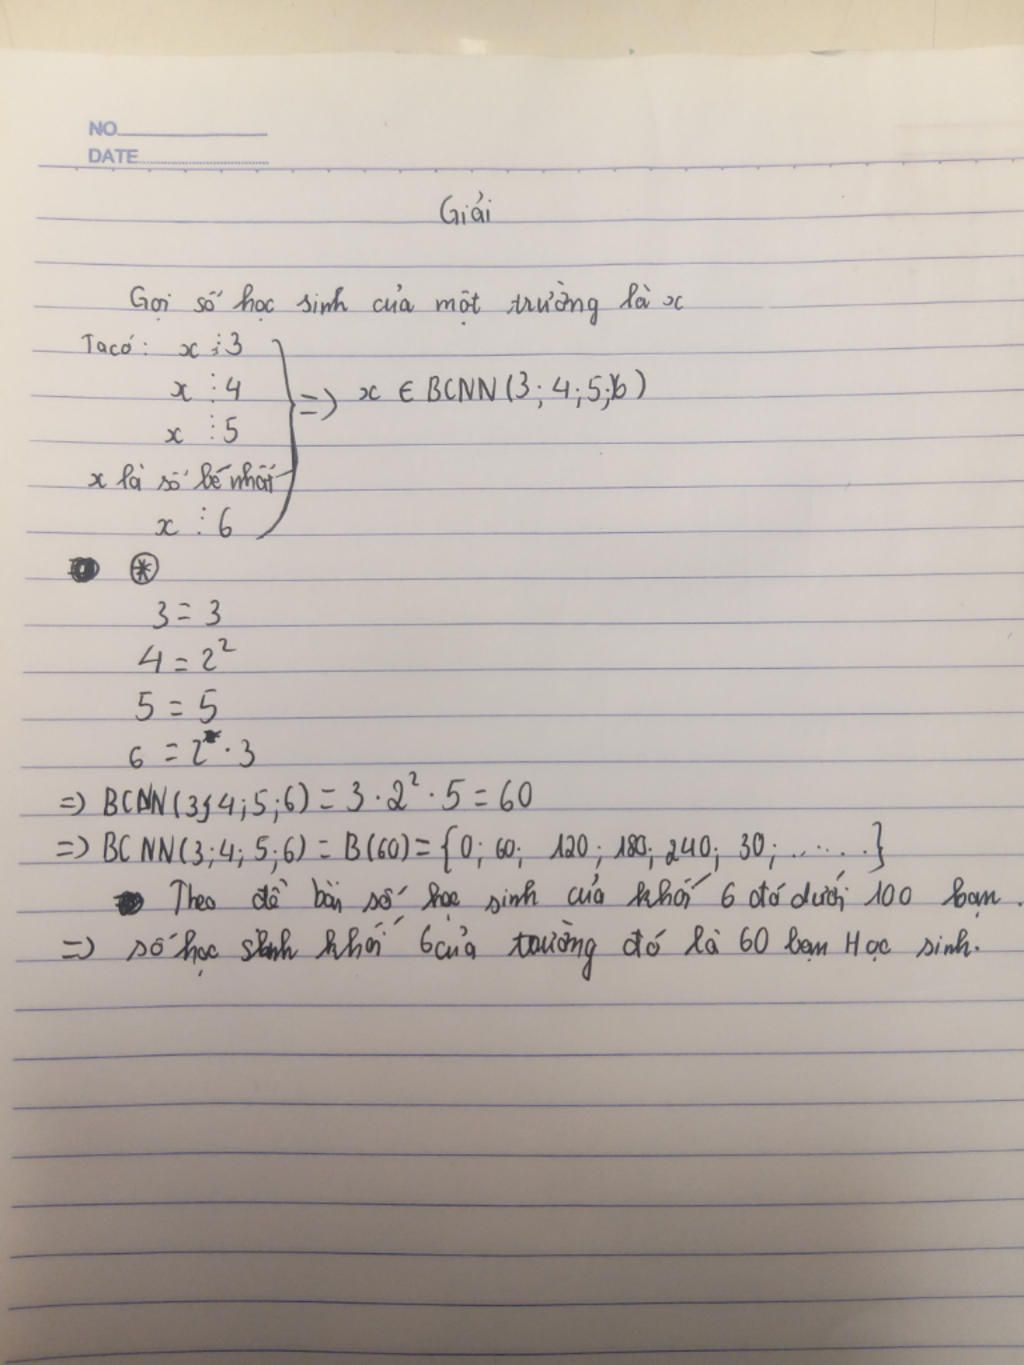 NO
DATE
Giải
Gọi số học sinh của một trường là x
Ta có: x ⋮ 3
x ⋮ 4
=> x ∈ BCNN (3; 4; 5; 6)
x ⋮ 5
x là số bé nhất
x ⋮ 6
⊛
3 = 3
4 = 2²
5 = 5
6 = 2 · 3
=> BCNN (3; 4; 5; 6) = 3 · 2² · 5 = 60
=> BCNN (3; 4; 5; 6) = B(60) = {0; 60; 120; 180; 240; 30; ......}
Theo đề bài số học sinh của khối 6 đó dưới 100 bạn.
=> số học sinh khối 6 của trường đó là 60 bạn Học sinh.